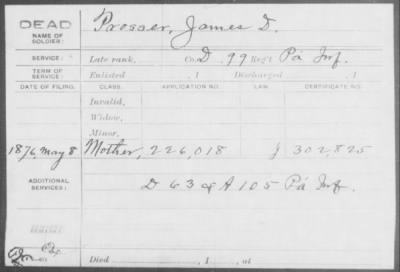 DEAD
NAME OF SOLDIER: Prosser, James D.
SERVICE: Late rank, Co. D. 99 Reg't Pa Inf.
TERM OF SERVICE: Enlisted , 1 Discharged , 1
DATE OF FILING. CLASS. APPLICATION NO. LAW. CERTIFICATE NO.
Invalid,
Widow,
Minor,
1876, May 8 Mother, 226,018 J 302,825
ADDITIONAL SERVICES: D 63 & A 105 Pa Inf.
Died , 1 , at